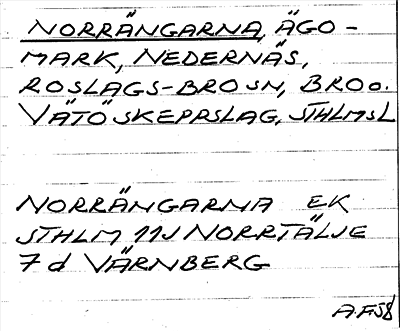 NORRÄNGARNA, ÄGO-
MARK, NEDERNÄS,
ROSLAGS-BRO SN, BRO O.
VÄTÖ SKEPRSLAG, STHLMSL
NORRÄNGARNA EK
STHLM 11J NORRTÄLJE
7d VÄRNBERG
A.F.58